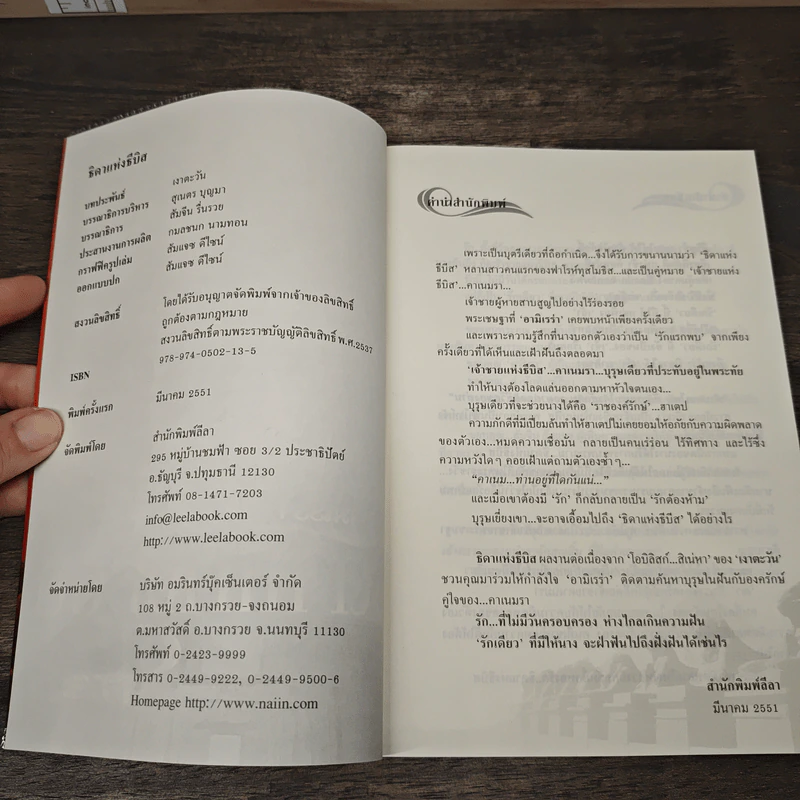 ธิดาแห่งธีบิส
บทประพันธ์ เงาตะวัน
บรรณาธิการบริหาร สุเนตร บุญมา
บรรณาธิการ สัมจีน รื่นรวย
ประสานงานการผลิต กมลชนก นามทอน
กราฟฟิครูปเล่ม สัมแจซ ดีไซน์
ออกแบบปก สัมแจซ ดีไซน์
สงวนลิขสิทธิ์ โดยได้รับอนุญาตจัดพิมพ์จากเจ้าของลิขสิทธิ์
ถูกต้องตามกฎหมาย
สงวนลิขสิทธิ์ตามพระราชบัญญัติลิขสิทธิ์ พ.ศ.2537
ISBN 978-974-0502-13-5
พิมพ์ครั้งแรก มีนาคม 2551
จัดพิมพ์โดย สำนักพิมพ์ลีลา
295 หมู่บ้านชมฟ้า ซอย 3/2 ประชาธิปัตย์
อ.ธัญบุรี จ.ปทุมธานี 12130
โทรศัพท์ 08-1471-7203
info@leelabook.com
http://www.leelabook.com
จัดจำหน่ายโดย บริษัท อมรินทร์บุ๊คเซ็นเตอร์ จำกัด
108 หมู่ 2 ถ.บางกรวย-จงถนอม
ต.มหาสวัสดิ์ อ.บางกรวย จ.นนทบุรี 11130
โทรศัพท์ 0-2423-9999
โทรสาร 0-2449-9222, 0-2449-9500-6
Homepage http://www.naiin.com
คำนำสำนักพิมพ์
เพราะเป็นบุตรีเดียวที่ถือกำเนิด...จึงได้รับการขนานนามว่า ‘ธิดาแห่ง
ธีบิส’ หลานสาวคนแรกของฟาโรห์ทุสโมธิส...และเป็นคู่หมาย ‘เจ้าชายแห่ง
ธีบิส’...คาเนมรา...
เจ้าชายผู้หายสาบสูญไปอย่างไร้ร่องรอย
พระเชษฐาที่ ‘อามิเรร่า’ เคยพบหน้าเพียงครั้งเดียว
และเพราะความรู้สึกที่นางบอกตัวเองว่าเป็น ‘รักแรกพบ’ จากเพียง
ครั้งเดียวที่ได้เห็นและเฝ้าฝันถึงตลอดมา
‘เจ้าชายแห่งธีบิส’...คาเนมรา...บุรุษเดียวที่ประทับอยู่ในพระทัย
ทำให้นางต้องโลดแล่นออกตามหาหัวใจตนเอง...
บุรุษเดียวที่จะช่วยนางได้คือ ‘ราชองครักษ์’...ฮาเตป
ความภักดีที่มีเปี่ยมล้นทำให้ฮาเตปไม่เคยยอมให้อภัยกับความผิดพลาด
ของตัวเอง...หมดความเชื่อมั่น กลายเป็นคนเร่ร่อน ไร้ทิศทาง และไร้ซึ่ง
ความหวังใดๆ คอยเฝ้าแต่ถามตัวเองซ้ำๆ...
“คาเนม...ท่านอยู่ที่ใดกันแน่...”
และเมื่อเขาต้องมี ‘รัก’ ก็กลับกลายเป็น ‘รักต้องห้าม’
บุรุษเยี่ยงเขา...จะอาจเอื้อมไปถึง ‘ธิดาแห่งธีบิส’ ได้อย่างไร
ธิดาแห่งธีบิส ผลงานต่อเนื่องจาก ‘โอบิลิสก์...สิเน่หา’ ของ ‘เงาตะวัน’
ชวนคุณมาร่วมให้กำลังใจ ‘อามิเรร่า’ ติดตามค้นหาบุรุษในฝันกับองครักษ์
คู่ใจของ...คาเนมรา
รัก...ที่ไม่มีวันครอบครอง ห่างไกลเกินความฝัน
‘รักเดียว’ ที่มีให้นาง จะฝ่าฟันไปถึงฝั่งฝันได้เช่นไร
สำนักพิมพ์ลีลา
มีนาคม 2551